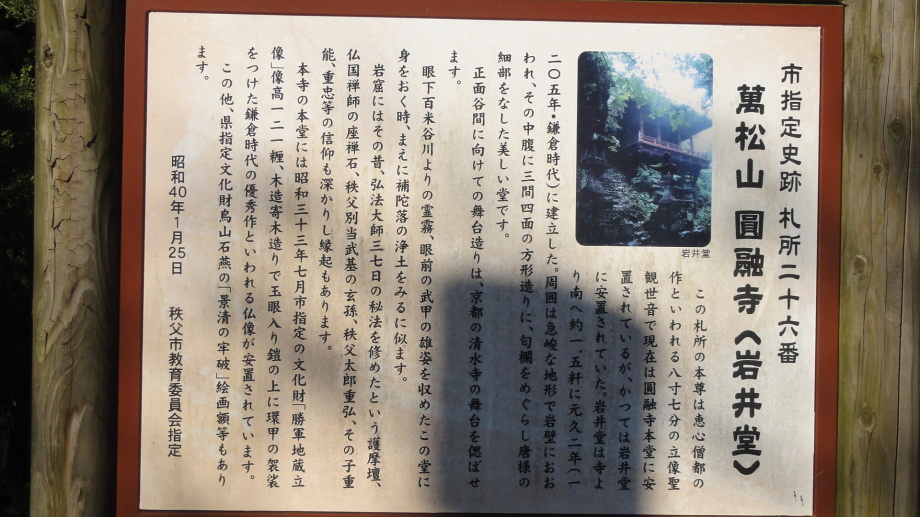 市指定史跡 札所二十六番
萬松山 圓融寺〈岩井堂〉
この札所の本尊は恵心僧都の
作といわれる八寸七分の立像聖
観世音で現在は圓融寺本堂に安
置されているが、かつては岩井堂
に安置されていた。岩井堂は寺よ
り南へ約一.五粁に元久二年(一
岩井堂
二〇五年・鎌倉時代)に建立した。周囲は急峻な地形で岩壁におお
われ、その中腹に三間四面の方形造りに、匂欄をめぐらし唐様の
細部をなした美しい堂です。
正面谷間に向けての舞台造りは、京都の清水寺の舞台を偲ばせ
ます。
眼下百米谷川よりの霊霧、眼前の武甲の雄姿を収めたこの堂に
身をおく時、まえに補陀落の浄土をみるに似ます。
岩窟にはその昔、弘法大師三七日の秘法を修めたという護摩壇、
仏国禅師の座禅石、秩父別当武基の玄孫、秩父太郎重弘、その子重
能、重忠等の信仰も深かりし縁起もあります。
本寺の本堂には昭和三十三年七月市指定の文化財「勝軍地蔵立
像」像高一二一糎、木造寄木造りで玉眼入り鎧の上に環甲の袈裟
をつけた鎌倉時代の優秀作といわれる仏像が安置されています。
この他、県指定文化財鳥山石燕の「景清の牢破」絵画額等もあり
ます。
昭和40年1月25日 秩父市教育委員会指定